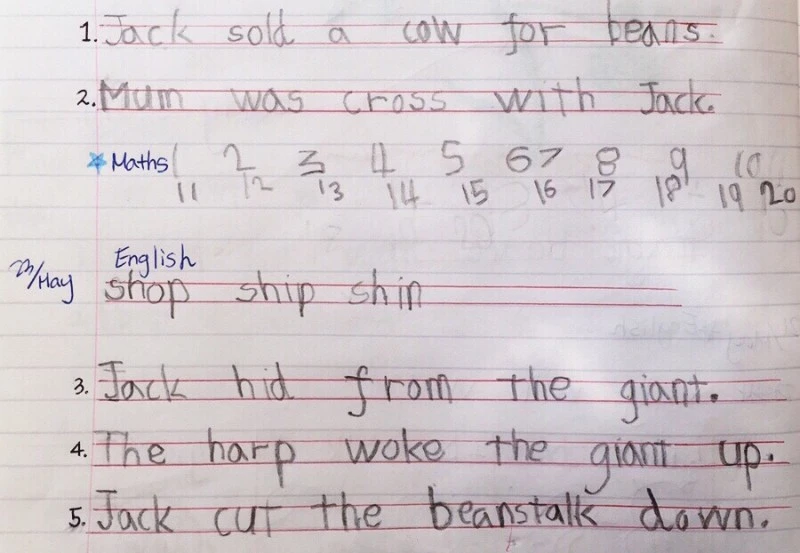 1. Jack sold a cow for beans.
2. Mum was cross with Jack.
Maths 1 2 3 4 5 6 7 8 9 10
11 12 13 14 15 16 17 18 19 20
English
23/May shop ship shin
3. Jack hid from the giant.
4. The harp woke the giant up.
5. Jack cut the beanstalk down.